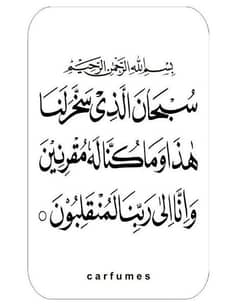 بِسْمِ اللهِ الرَّحْمٰنِ الرَّحِيْمِ
سُبْحَانَ الَّذِیْ سَخَّرَ لَنَا
هٰذَا وَمَا كُنَّا لَهٗ مُقْرِنِيْنَ
وَاِنَّا اِلٰی رَبِّنَا لَمُنْقَلِبُوْنَ ○
carfumes